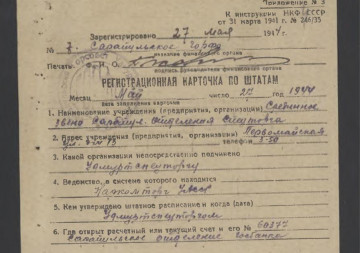 Приложение № 3
К инструкции НКФ СССР
от 31 марта 1941 г. № 246/35
Зарегистрировано 27 мая 1944 г.
№ 7. Сарапульское Горфо
наименование финансового органа
Печать
подпись руководителя финансового органа
РЕГИСТРАЦИОННАЯ КАРТОЧКА ПО ШТАТАМ
Месяц Май число 27 1944
дата заполнения карточки
1. Наименование учреждения (предприятия, организации)
звено Сарапул.
2. Адрес учреждения (предприятия, организации) Первомайская
ул. телефон
3. Какой организации непосредственно подчинено
Удмуртспецторгу
4. Ведомство, в систему которого находится
Наркомторг
5. Кем утверждено штатное расписание и когда (дата)
Удмуртспецторгом
6. Где открыт расчетный или текущий счет и его № 60377
Сарапульское отделение Госбанка